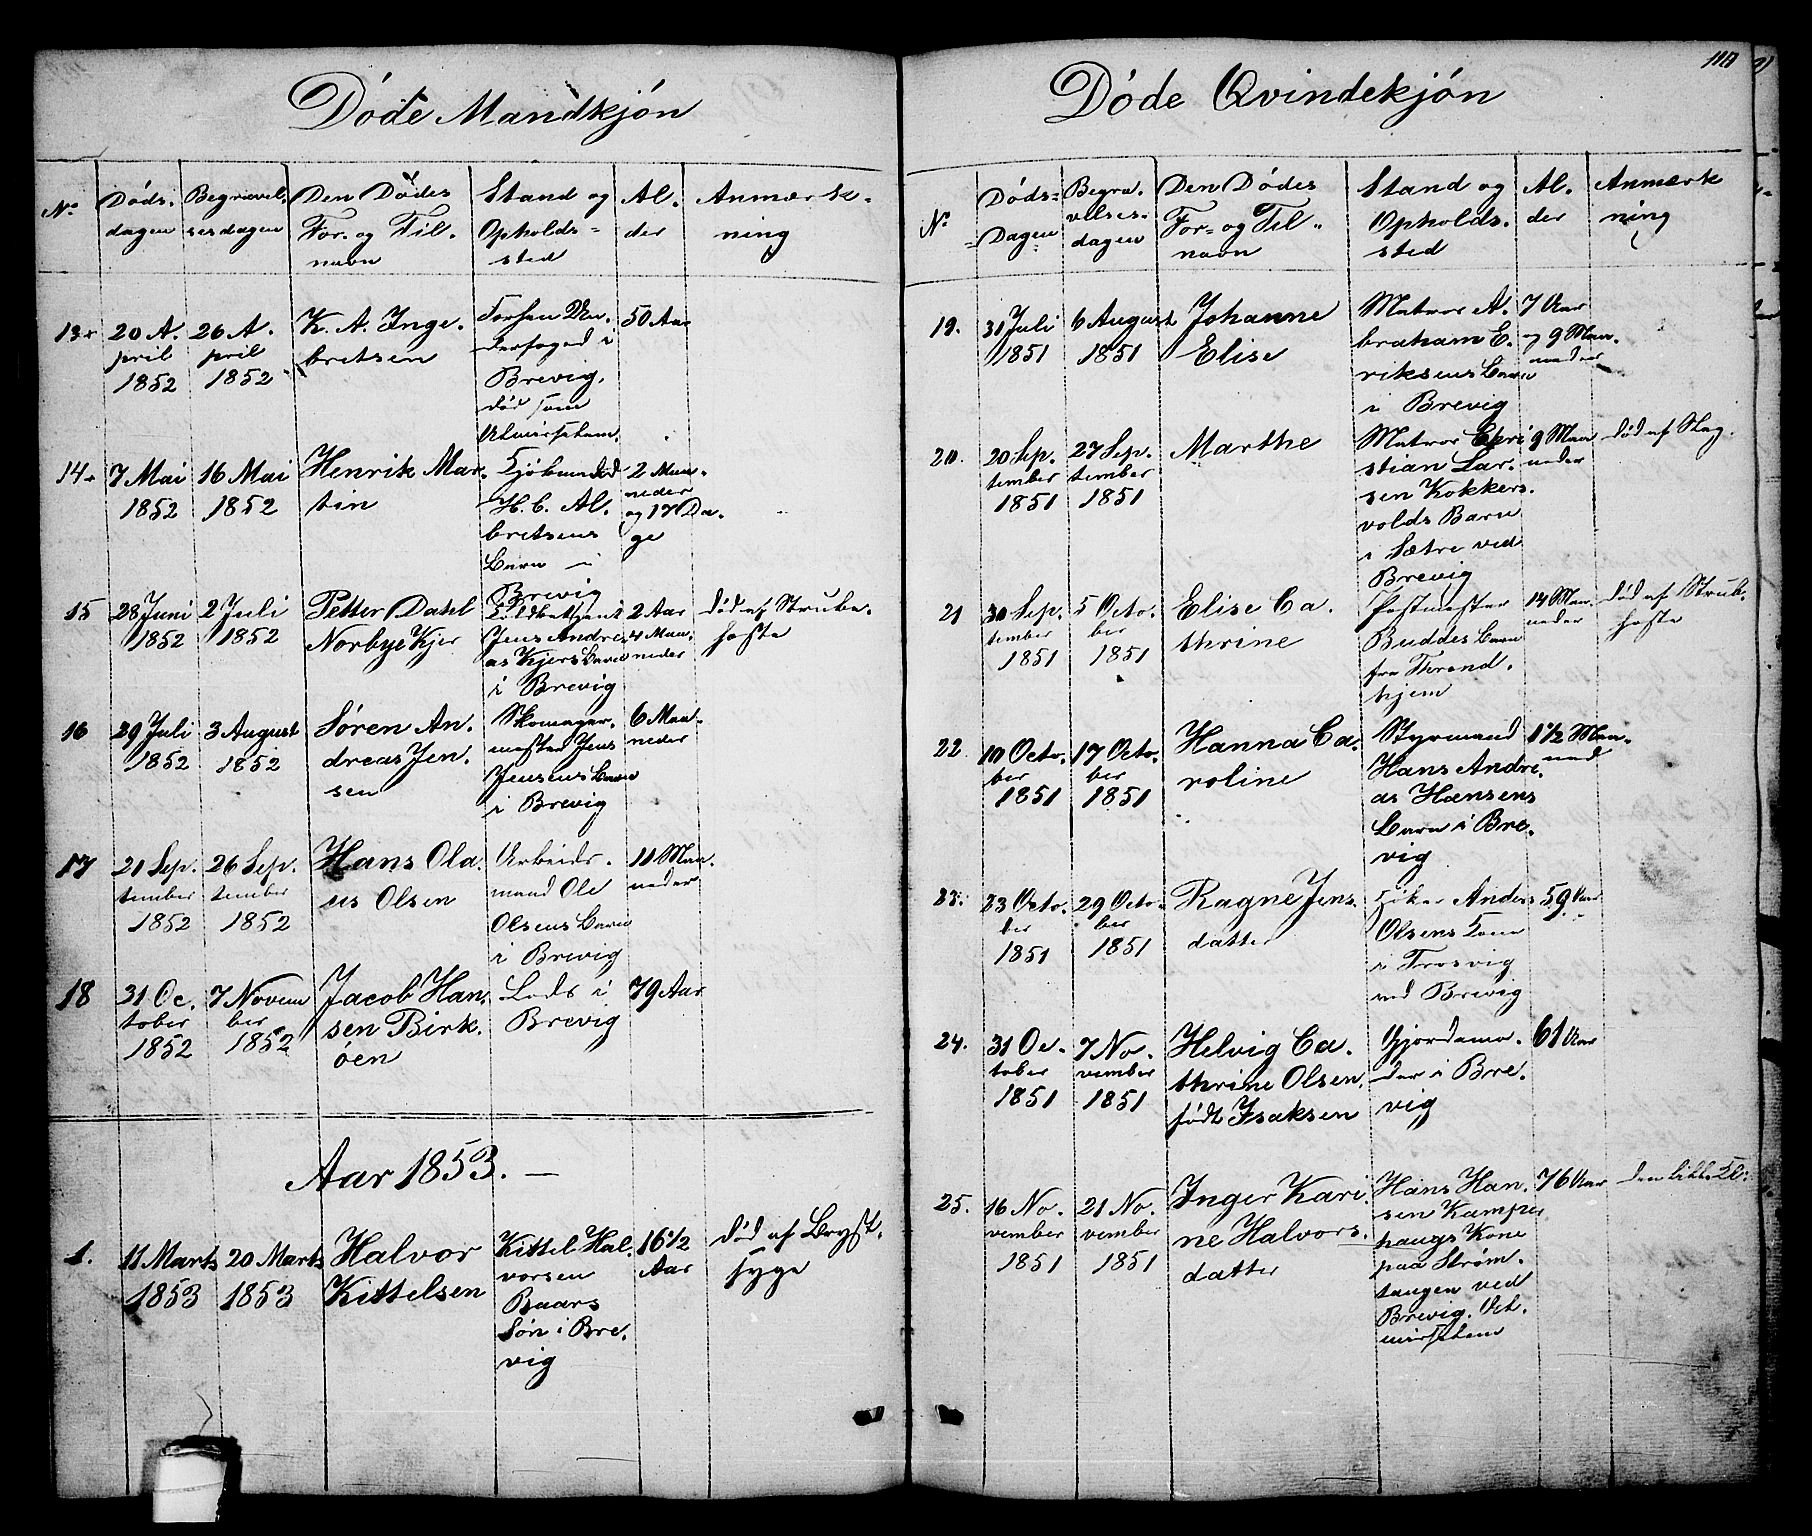 Døde Mandkjøn
No
Døds-
dagen
Begravel-
sesdagen
Den Dødes
For- og Til-
navn
Stand og
Opholds-
sted
Al-
der
Anmærk-
ning
13
20 A-
pril
1852
26 A-
pril
1852
K. A. Inge-
bretsen
i
Brevig,
død som
50 Aar
14
7 Mai
1852
16 Mai
1852
Henrik Mar-
tin
H. C. Al-
bretsens
Barn i
Brevig
2 Maa-
neder
og 17 Da-
ge
15
28 Juni
1852
2 Juli
1852
Petter Dahl
Norbye Kjer
Toldbetjent
Jens Andre-
as Kjers Barn
i Brevig
2 Aar
4 Maa-
neder
død af Strube-
hoste
16
29 Juli
1852
3 August
1852
Søren An-
dreas Jen-
sen
Skomager-
mester Jens
Jensens Barn
i Brevig
6 Maa-
neder
17
21 Sep-
tember
1852
26 Sep-
tember
1852
Hans Ola-
us Olsen
Arbeids-
mand Ole
Olsens Barn
i Brevig
11 Maa-
neder
18
31 Oc-
tober
1852
7 Novem
ber
1852
Jacob Han-
sen Birk-
øen
Lods i
Brevig
79 Aar
Aar 1853. —
1.
11 Marts
1853
20 Marts
1853
Halvor
Kittelsen
Kittel Hal-
vorsen
Baars
Søn i Bre-
vig
16 1/2
Aar
død af Bryst-
syge
Døde Qvindekjøn
No
Døds-
Dagen
Begra-
velses-
dagen
Den Dødes
For- og Til-
navn
Stand og
Opholds-
sted
Al-
der
Anmærk
ning
19.
31 Juli
1851
6 August
1851
Johanne
Elise
Matros A-
braham E-
riksens Barn
i Brevig
7 Aar
og 9 Maa-
neder
20.
20 Sep-
tember
1851
27 Sep-
tember
1851
Marthe
Matros Chri
stian Lar-
sen Kokkers-
volds Barn
i Sætre ved
Brevig
9 Maa
neder
død af Slag
21
30 Sep-
tember
1851
5 Octo-
ber
1851
Elise Ca-
thrine
Postmester
Buddes Barn
fra Thrond-
hjem
14 Maa-
neder
død af Strube-
hoste
22.
10 Octo-
ber
1851
17 Octo-
ber
1851
Hanna Ca-
roline
Styrmand
Hans Andre-
as Hansens
Barn i Bre-
vig
1 1/2 Maa-
ned
23.
23 Octo-
ber
1851
29 Octo-
ber
1851
Ragne Jens-
datter
Fisker Anders
Olsens Kone
i Trosvig
ved Brevig
59 Aar
24.
31 Oc-
tober
1851
7 No-
vember
1851
Helvig Ca-
thrine Olsen,
født Isaksen
Gjordemo-
der i Bre-
vig
61 Aar
25.
16 No-
vember
1851
21 No-
vember
1851
Inger Kari-
ne Halvors-
datter
Hans Han-
sen Kampe-
haugs Kone
paa Strøm-
tangen ved
Brevig.
76 Aar